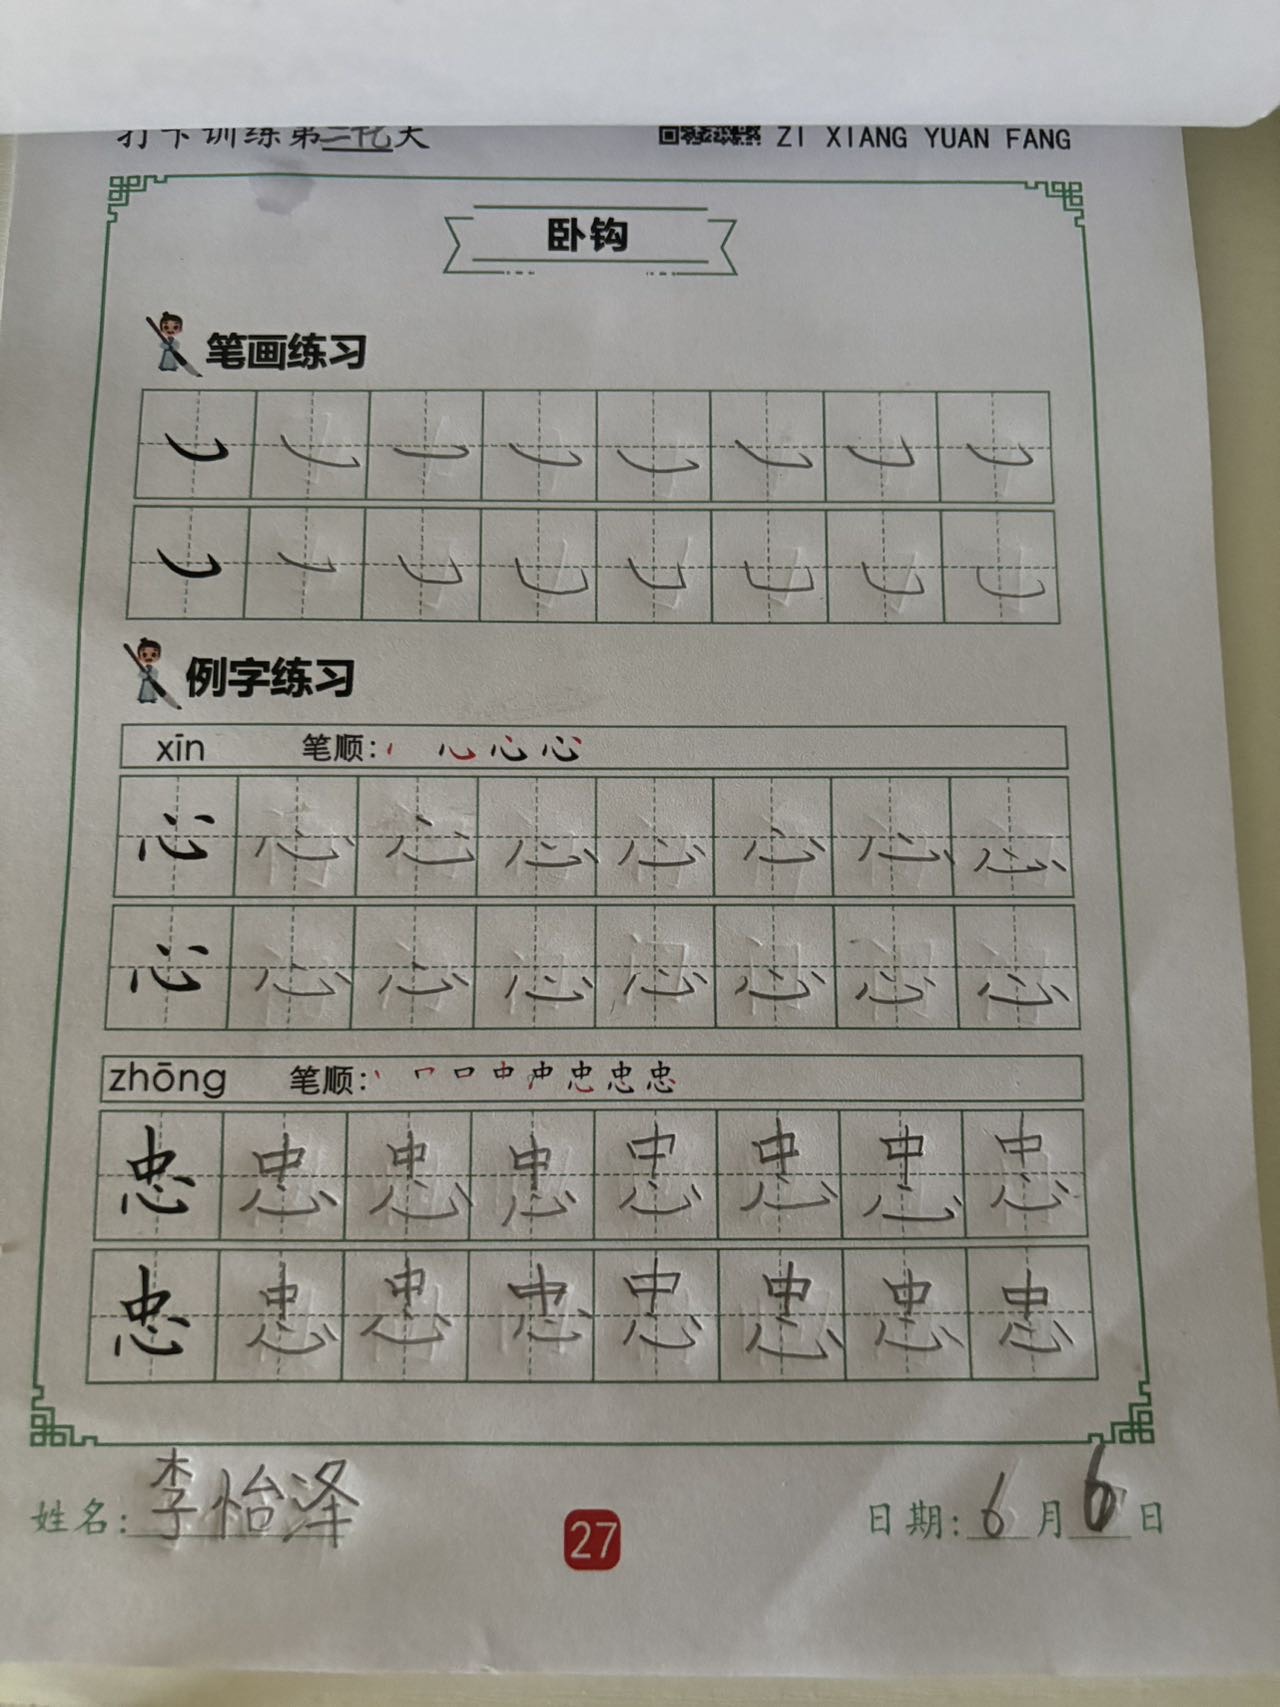 打卡训练第二化天 ZI XIANG YUAN FANG
卧钩
笔画练习
例字练习
xīn 笔顺:
心 心 心 心 心 心 心 心
心 心 心 心 心 心 心 心
zhōng 笔顺:
忠 忠 忠 忠 忠 忠 忠 忠
忠 忠 忠 忠 忠 忠 忠 忠
姓名: 李怡泽 27 日期: 6 月 6 日